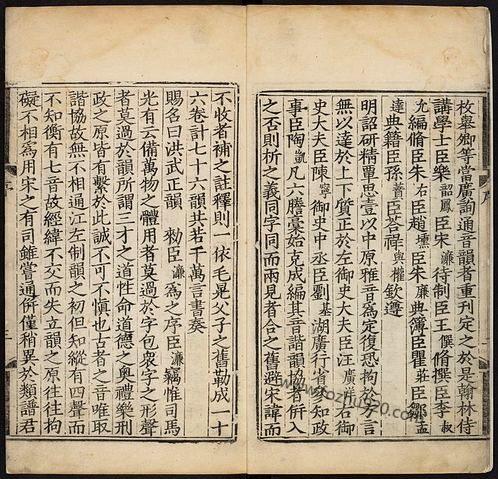 枚舉卿等當廣詢通音韻者重刊定之於是翰林侍
講學士臣樂韶鳳臣宋濂待制臣王僎修撰臣李叔
允編脩臣朱右臣趙壎臣朱廉典簿臣瞿莊臣鄒孟
達典籍臣孫蕡臣荅祿與權欽遵
明詔研精覃思壹以中原雅音為定復恐拘於方言
無以達於上下質正於左御史大夫臣汪廣洋右御
史大夫臣陳寧御史中丞臣劉基湖廣行省參知政
事臣陶凱凡六謄藁始克成編其音諧韻協者併入
之否則析之義同字同而兩見者合之舊避宋諱而
不收者補之註釋則一依毛晃父子之舊勒成一十
六卷計七十六韻共若干萬言書奏
賜名曰洪武正韻 勑臣濂為之序臣濂竊惟司馬
光有云備萬物之體用者莫過於字包衆字之形聲
者莫過於韻所謂三才之道性命道德之奧禮樂刑
政之原皆有繫於此誠不可不慎也古者之音唯取
諧協故無不相通江左制韻之初但知縱有四聲而
不知衡有七音故經緯不交而失立韻之原往往拘
礙不相為用宋之有司雖嘗通併僅稍異於類譜君